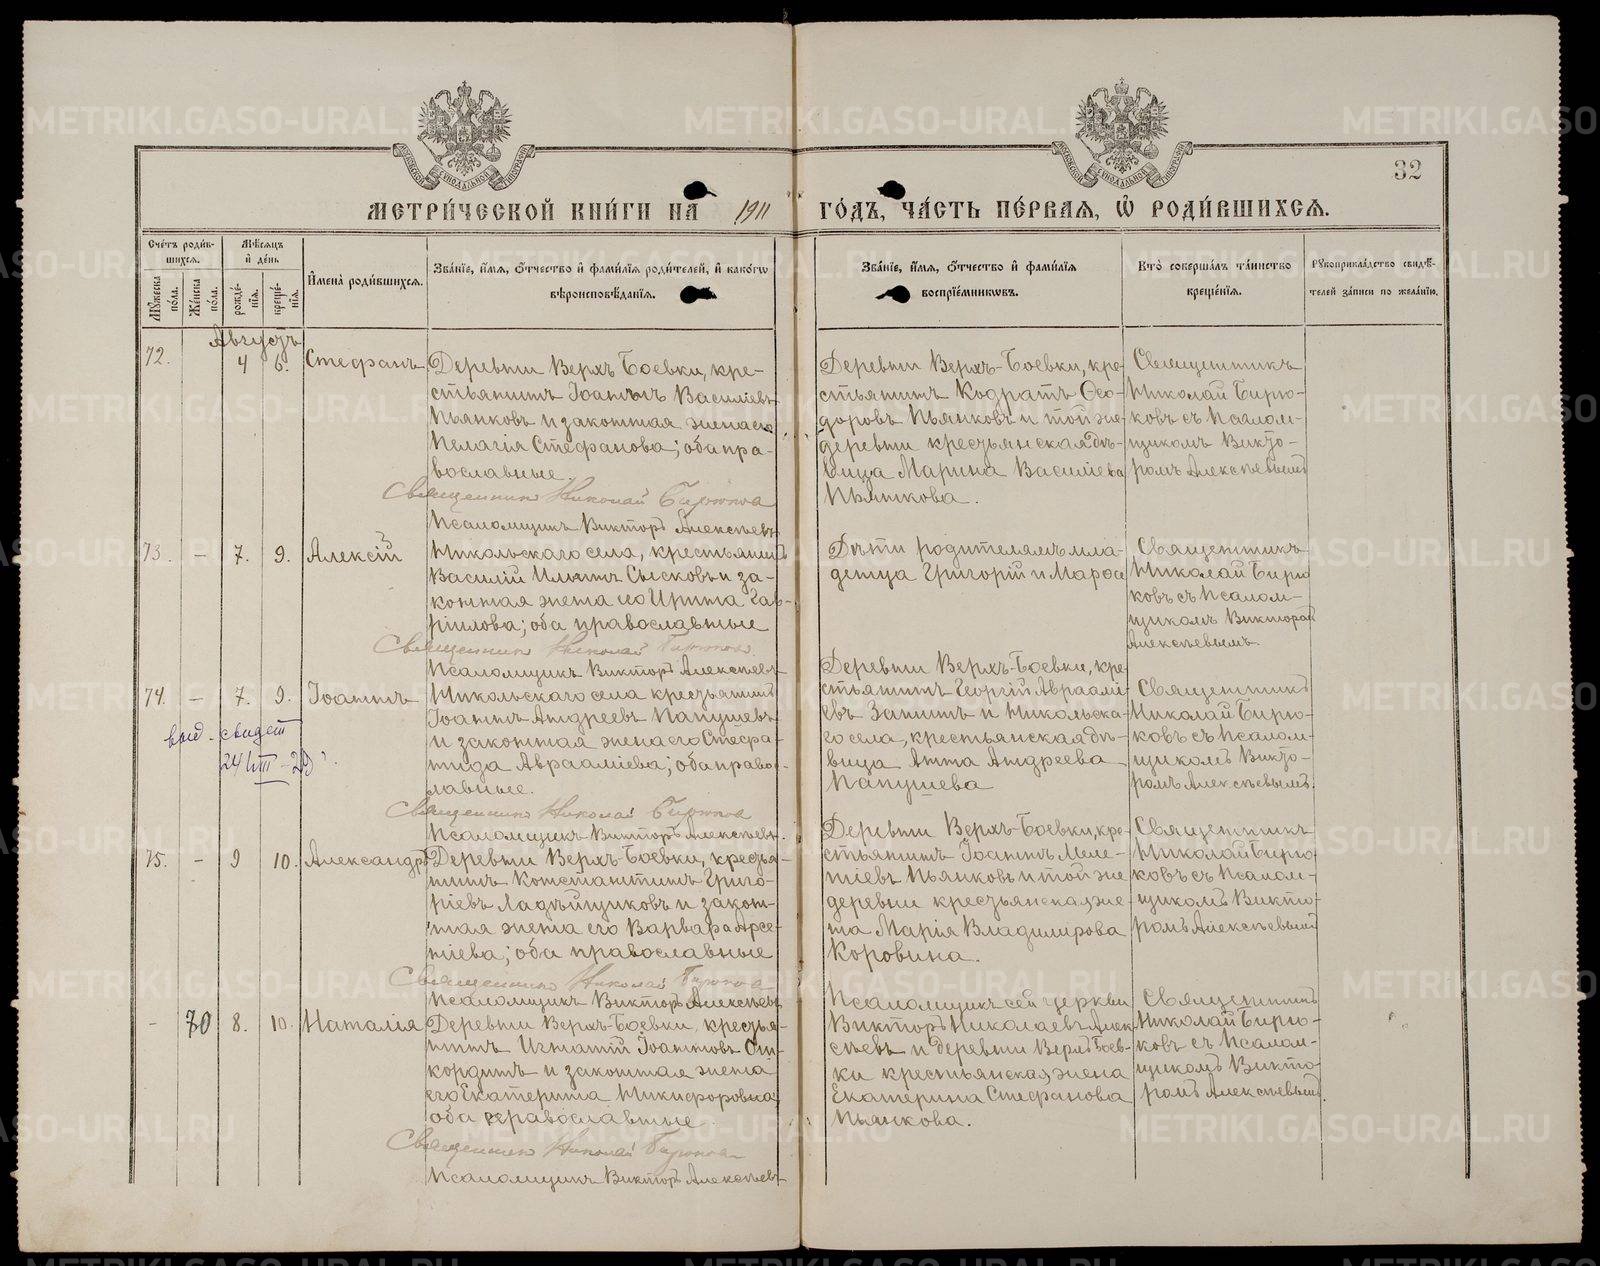 32
МЕТРИ́ЧЕСКОЙ КНИ́ГИ НА 1911 ГО́ДЪ, ЧА́СТЬ ПЕ́РВАЯ, Ѡ РОДИ́ВШИХСЯ.
Сче́тъ роди́в-
шихся.
Му́жеска по́ла.
Же́нска по́ла.
Мѣ́сяцъ
и де́нь
рожде́-
нія.
креще́-
нія.
Имена̀ роди́вшихся.
Зва́ніе, и́мя, о́тчество и фами́лія роди́телей, и како́гѡ
вѣроисповѣ́данія.
Зва́ніе, и́мя, о́тчество и фами́лія
воспріе́мниковъ.
Кто̀ соверша́лъ та́инство
креще́нія.
Рукоприкла́дство свидѣ́-
телей за́писи по жела́нію.
Августъ
72.
4
6.
Стефанъ
Деревни Верхъ Боевки, кре-
стьянинъ Іоаннъ Василіевъ
Пьянковъ и законная жена его
Пелагія Стефанова; оба пра-
вославные.
Священникъ Николай Бирюков
Псаломщикъ Викторъ Алексѣевъ
Деревни Верхъ-Боевки, кре-
стьянинъ Кодратъ Ѳео-
доровъ Пьянковъ и той же
деревни крестьянская дѣ-
вица Марина Василіева
Пьянкова.
Священникъ
Николай Бирю-
ковъ съ Псалом-
щикомъ Викто-
ромъ Алексѣевымъ
73.
–
7.
9.
Алексій
Никольскаго села, крестьянинъ
Василій Ильинъ Сысковъ и за-
конная жена его Ирина Гав-
ріилова; оба православные
Священникъ Николай Бирюков
Псаломщикъ Викторъ Алексѣевъ
Дѣти родителямъ мла-
денца Григорій и Марѳа
Священникъ
Николай Бирю
ковъ съ Псалом-
щикомъ Викторомъ
Алексѣевымъ.
74.
–
7.
9.
Іоаннъ
выд. свидет
24 VIII – 29
Никольскаго села крестьянинъ
Іоаннъ Андреевъ Папушевъ
и законная жена его Стефа-
нида Авраамiева; оба право-
лавные.
Священникъ Николай Бирюков
Псаломщикъ Викторъ Алексѣевъ.
Деревни Верхъ-Боевки, кре-
стьянинъ Георгій Авраамі-
евъ Запинъ и Никольска-
го села, крестьянская дѣ-
вица Анна Андреева
Папушева
Священникъ
Николай Бирю-
ковъ съ Псалом-
щикомъ Викто-
ромъ Алексѣевымъ.
75.
–
9
10.
Александръ
Деревни Верхъ-Боевки, крестья-
нинъ Константинъ Григо-
ріевъ Ладейщиковъ и закон-
ная жена его Варвара Арсе-
ніева; оба православные
Священникъ Николай Бирюков
Псаломщикъ Викторъ Алексѣевъ
Деревни Верхъ-Боевки, кре-
стьянинъ Іоаннъ Меле-
тіевъ Пьянковъ и той же
деревни крестьянская же-
на Марія Владимірова
Коровина.
Священникъ
Николай Бирю
ковъ съ Псалом-
щикомъ Викто-
ромъ Алексѣевымъ
–
70
8.
10.
Наталія
Деревни Верхъ-Боевки, крестья-
нинъ Игнатій Іоанновъ Ски-
кординъ и законная жена
его Екатерина Никифоровна,
оба православные.
Священникъ Николай Бирюков
Псаломщикъ Викторъ Алексѣевъ
Псаломщикъ сей церкви
Викторъ Николаевъ Алек-
сѣевъ и деревни Верхъ Боев-
ки крестьянская жена
Екатерина Стефанова
Пьянкова.
Священникъ
Николай Бирю-
ковъ съ Псалом-
щикомъ Викто-
ромъ Алексѣевымъ.
METRIKI.GASO-URAL.RU